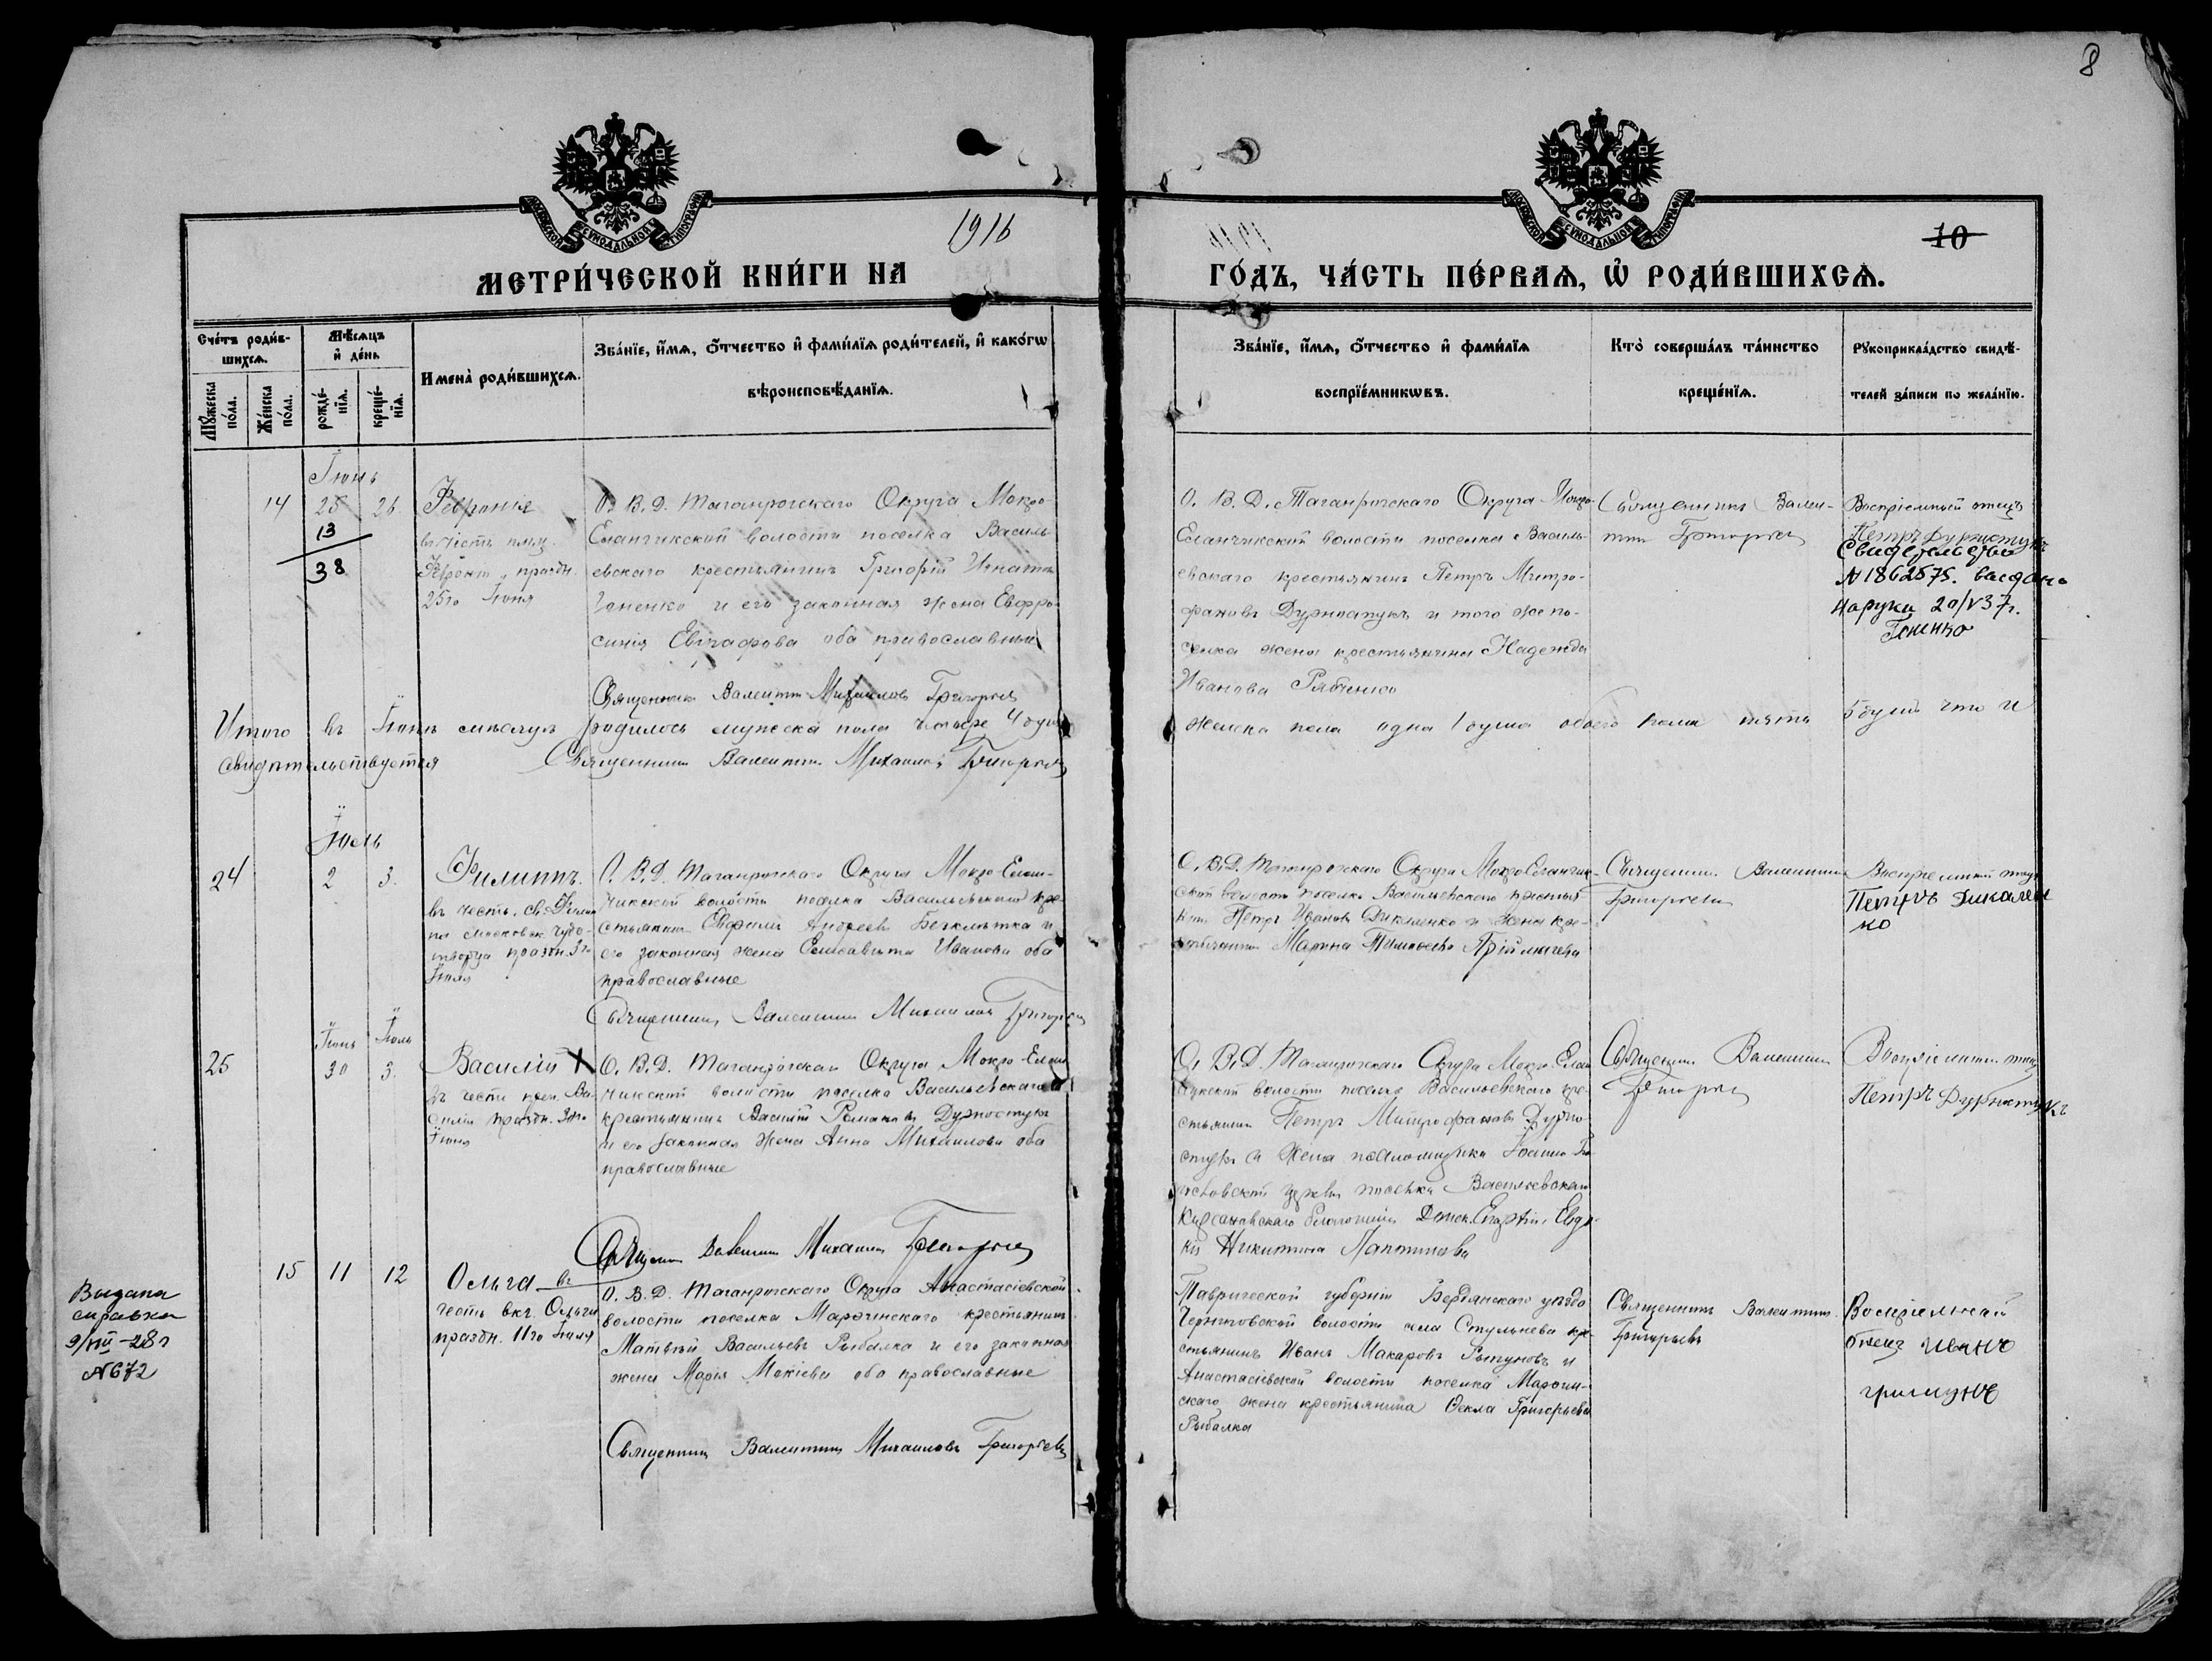 8
МОСКОВСКОЙ СѴНОДАЛЬНОЙ ТИПОГРАФІИ
МОСКОВСКОЙ СѴНОДАЛЬНОЙ ТИПОГРАФІИ
1916
10
МЕТРИ́ЧЕСКОЙ КНИ́ГИ НА
ГО́ДЪ, ЧА́СТЬ ПЕ́РВАѦ, Ѡ҆ РОДИ́ВШИХСѦ.
Сче́тъ роди́в-
шихсѧ.
Мѣ́сѧцъ
и҆ де́нь
Мꙋ́жеска
по́ла.
Же́нска
по́ла.
рожде́-
нїѧ.
креще́-
нїѧ.
Имена̀ роди́вшихсѧ.
Зва́нїе, и҆́мѧ, ѻ҆́тчество и҆ фами́лїѧ роди́телей, и҆ како́гѡ
вѣроисповѣ́данїѧ.
Зва́нїе, и҆́мѧ, ѻ҆́тчество и҆ фами́лїѧ
воспрїе́мникѡвъ.
Кто̀ соверша́лъ та́инство
креще́нїѧ.
Рꙋкоприкла́дство свидѣ́-
телей за́писи по жела́нїю.
Іюнь
14
25
26
13
38
Февронія
въ честь прмц.
Феврон. праздн.
25го Іюня
О. В. Д. Таганрогскаго Округа Мокро-
Еланчикской волости поселка Василь
евскаго крестьянинъ Григорій Игнатовъ
Гоненко и его законная жена Евфро-
синія Евграфова оба православные
Священникъ Валентинъ Михаиловъ Григорьевъ
О. В. Д. Таганрогскаго Округа Мокро-
Еланчикской волости поселка Василь-
евскаго крестьянинъ Петръ Митро-
фановъ Дурностукъ и того же по-
селка жена крестьянина Надежда
Иванова Рябченко
Священникъ Вален-
тинъ Григорьевъ
Воспріемный отецъ
Петръ Дурностукъ
Свидетельство
№ 1862575. выдано
на руки 20/V 37г.
Гоненко
Итого въ Іюнѣ мѣсяцѣ родилось мужеска пола четыре 4 души
женска пола одна 1 душа обоего пола пять 5 душъ что и
свидѣтельствуется Священникъ Валентинъ Михаиловъ Григорьевъ
Іюль
24
2
3.
Филиппъ.
въ честь св. Филип
па московск. чудо-
творца праздн. 3го
Іюля
О. В. Д. Таганрогскаго Округа Мокро-Елан-
чикской волости поселка Васильевскаго кре-
стьянинъ Андреевъ и
его законная жена Елисавета Иванова оба
православные
Священникъ Валентинъ Михаиловъ Григорьевъ
О. В. Д. Таганрогскаго Округа Мокро Еланчик-
ской волости поселка Васильевскаго крестья-
нинъ Петръ Ивановъ Дикаленко и жена кре-
стьянина Марина Тимофеева
Священникъ Валентинъ
Григорьевъ
Воспріемный отецъ
Петръ Дикален
ко
Іюнь
Іюль
25
30
3.
Василій X
въ честь преп. Ва-
силія праздн.
Іюня
О. В. Д. Таганрогскаго Округа Мокро-Елан
чикской волости поселка Васильевскаго
крестьянинъ Василій Романовъ Дурностукъ
и его законная жена Анна Михаилова оба
православные
Священникъ Валентинъ Михаиловъ Григорьевъ
О. В. Д. Таганрогскаго Округа Мокро Елан
чикской волости поселка Васильевскаго кре-
стьянинъ Петръ Митрофановъ Дурно-
стукъ и жена псаломщика Іоанно Бо-
гословской церкви поселка Васильевскаго
Донск. Епархіи, Евдо-
кія Никитина
Священникъ Валентинъ
Григорьевъ
Воспріемный отецъ
Петръ Дурностукъ
15
11
12
Ольга въ
честь вкг. Ольги
праздн. 11го Іюля
О. В. Д. Таганрогскаго Округа Анастасіевской
волости поселка Марочинскаго крестьянинъ
Матвѣй Васильевъ Рыбалка и его законная
жена Марія Мокіева оба православные
Священникъ Валентинъ Михаиловъ Григорьевъ
Таврической губерніи Бердянскаго уѣзда
Черниговской волости села Стульнева кре-
стьянинъ Иванъ Макаровъ и
Анастасіевской волости поселка Марочин-
скаго жена крестьянина Ѳекла Григорьева
Рыбалка
Священникъ Валентинъ
Григорьевъ
Воспріемный
отецъ Иванъ
Выдана
справка
9/VIII-28г
№ 672